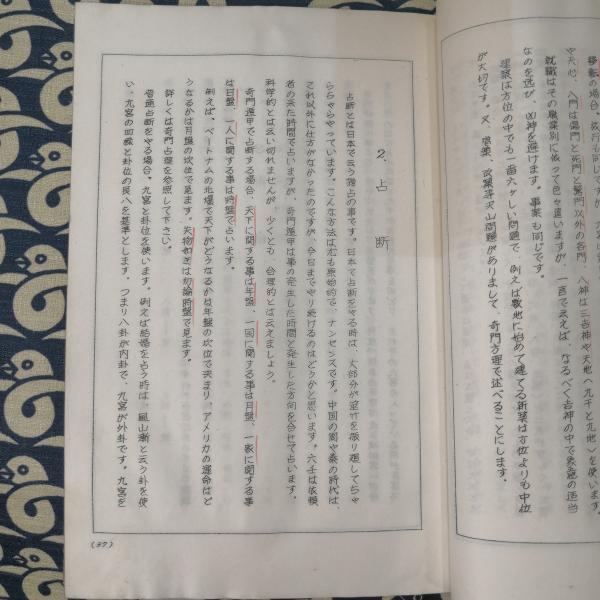 移転の場合、旅行も同じですが、
や天心、八門は傷門と死門と驚門以外の各門　八神は三吉神や天地（九干と九地）を使います。
就職はその職業別に依って色々違いますが、一言で云えば、なるべく吉神の中で象意の適当
なのを選び、凶神を避けます。事業も同じです。
建築は方位の中でも一番六ヶしい問題で、例えば敷地に始めて建てる新築は方位よりも中位
が大切です。又、増築、改築等沢山問題がありまして、奇門方理で述べることにします。
2. 占断
占断とは日本で云う踏占の事です。日本で占断をやる時は、大部分が筮竹を振り廻してちゃ
らちゃらやっています。こんな方法は尤も原始的で、ナンセンスです。中国の周や秦の時代は、
これ以外に仕方がなかったのですが、今日までやり続けるのはどうかと思います。六壬は依頼
者の来た時間で占いますが、奇門遁甲は事の発生した時間と発生した方向を合せて占います。
科学的とは云い切れませんが、少くとも、合理的とは云えましょう。
奇門遁甲で占断する場合、天下に関する事は年盤、一国に関する事は月盤、一家に関する事
は日盤、一人に関する事は時盤で占います。
例えば、ベートナムの北爆で天下がどうなるかは年盤の坎位で決まり、アメリカの運命はど
うなるかは月盤の坎位で見ます。失物和ぎは勿論時盤で見ます。
詳しくは奇門占理を参照して下さい。
普通占断をやる場合、九宮と卦位を使います。例えば結婚を占う時は、風山漸と云う卦を使
い、九宮の四緑と卦位の艮八を基準とします。つまり八卦が内卦で、九宮が外卦です。九宮を
(37)